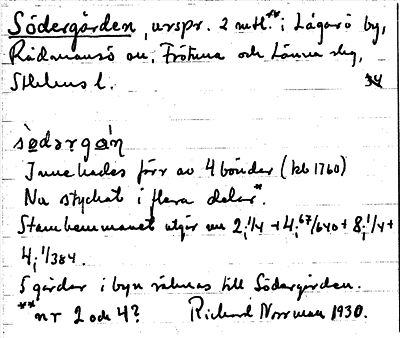 Södergården, urspr. 2 mtl.** i Lågarö by,
Rådmansö sn, Frötuna och Länna slg,
Sthlms l. 34
södərgɑ́n
Innehades förr av 4 bönder (kb 1760)
Nu styckat i flera delar*.
Stamhemmanet utgör nu 2;1/4 + 4;67/640 + 8;1/4+
4;1/384.
5 gårdar i byn räknas till Södergården.
** nr 2 och 4? Rickard Norrman 1930.